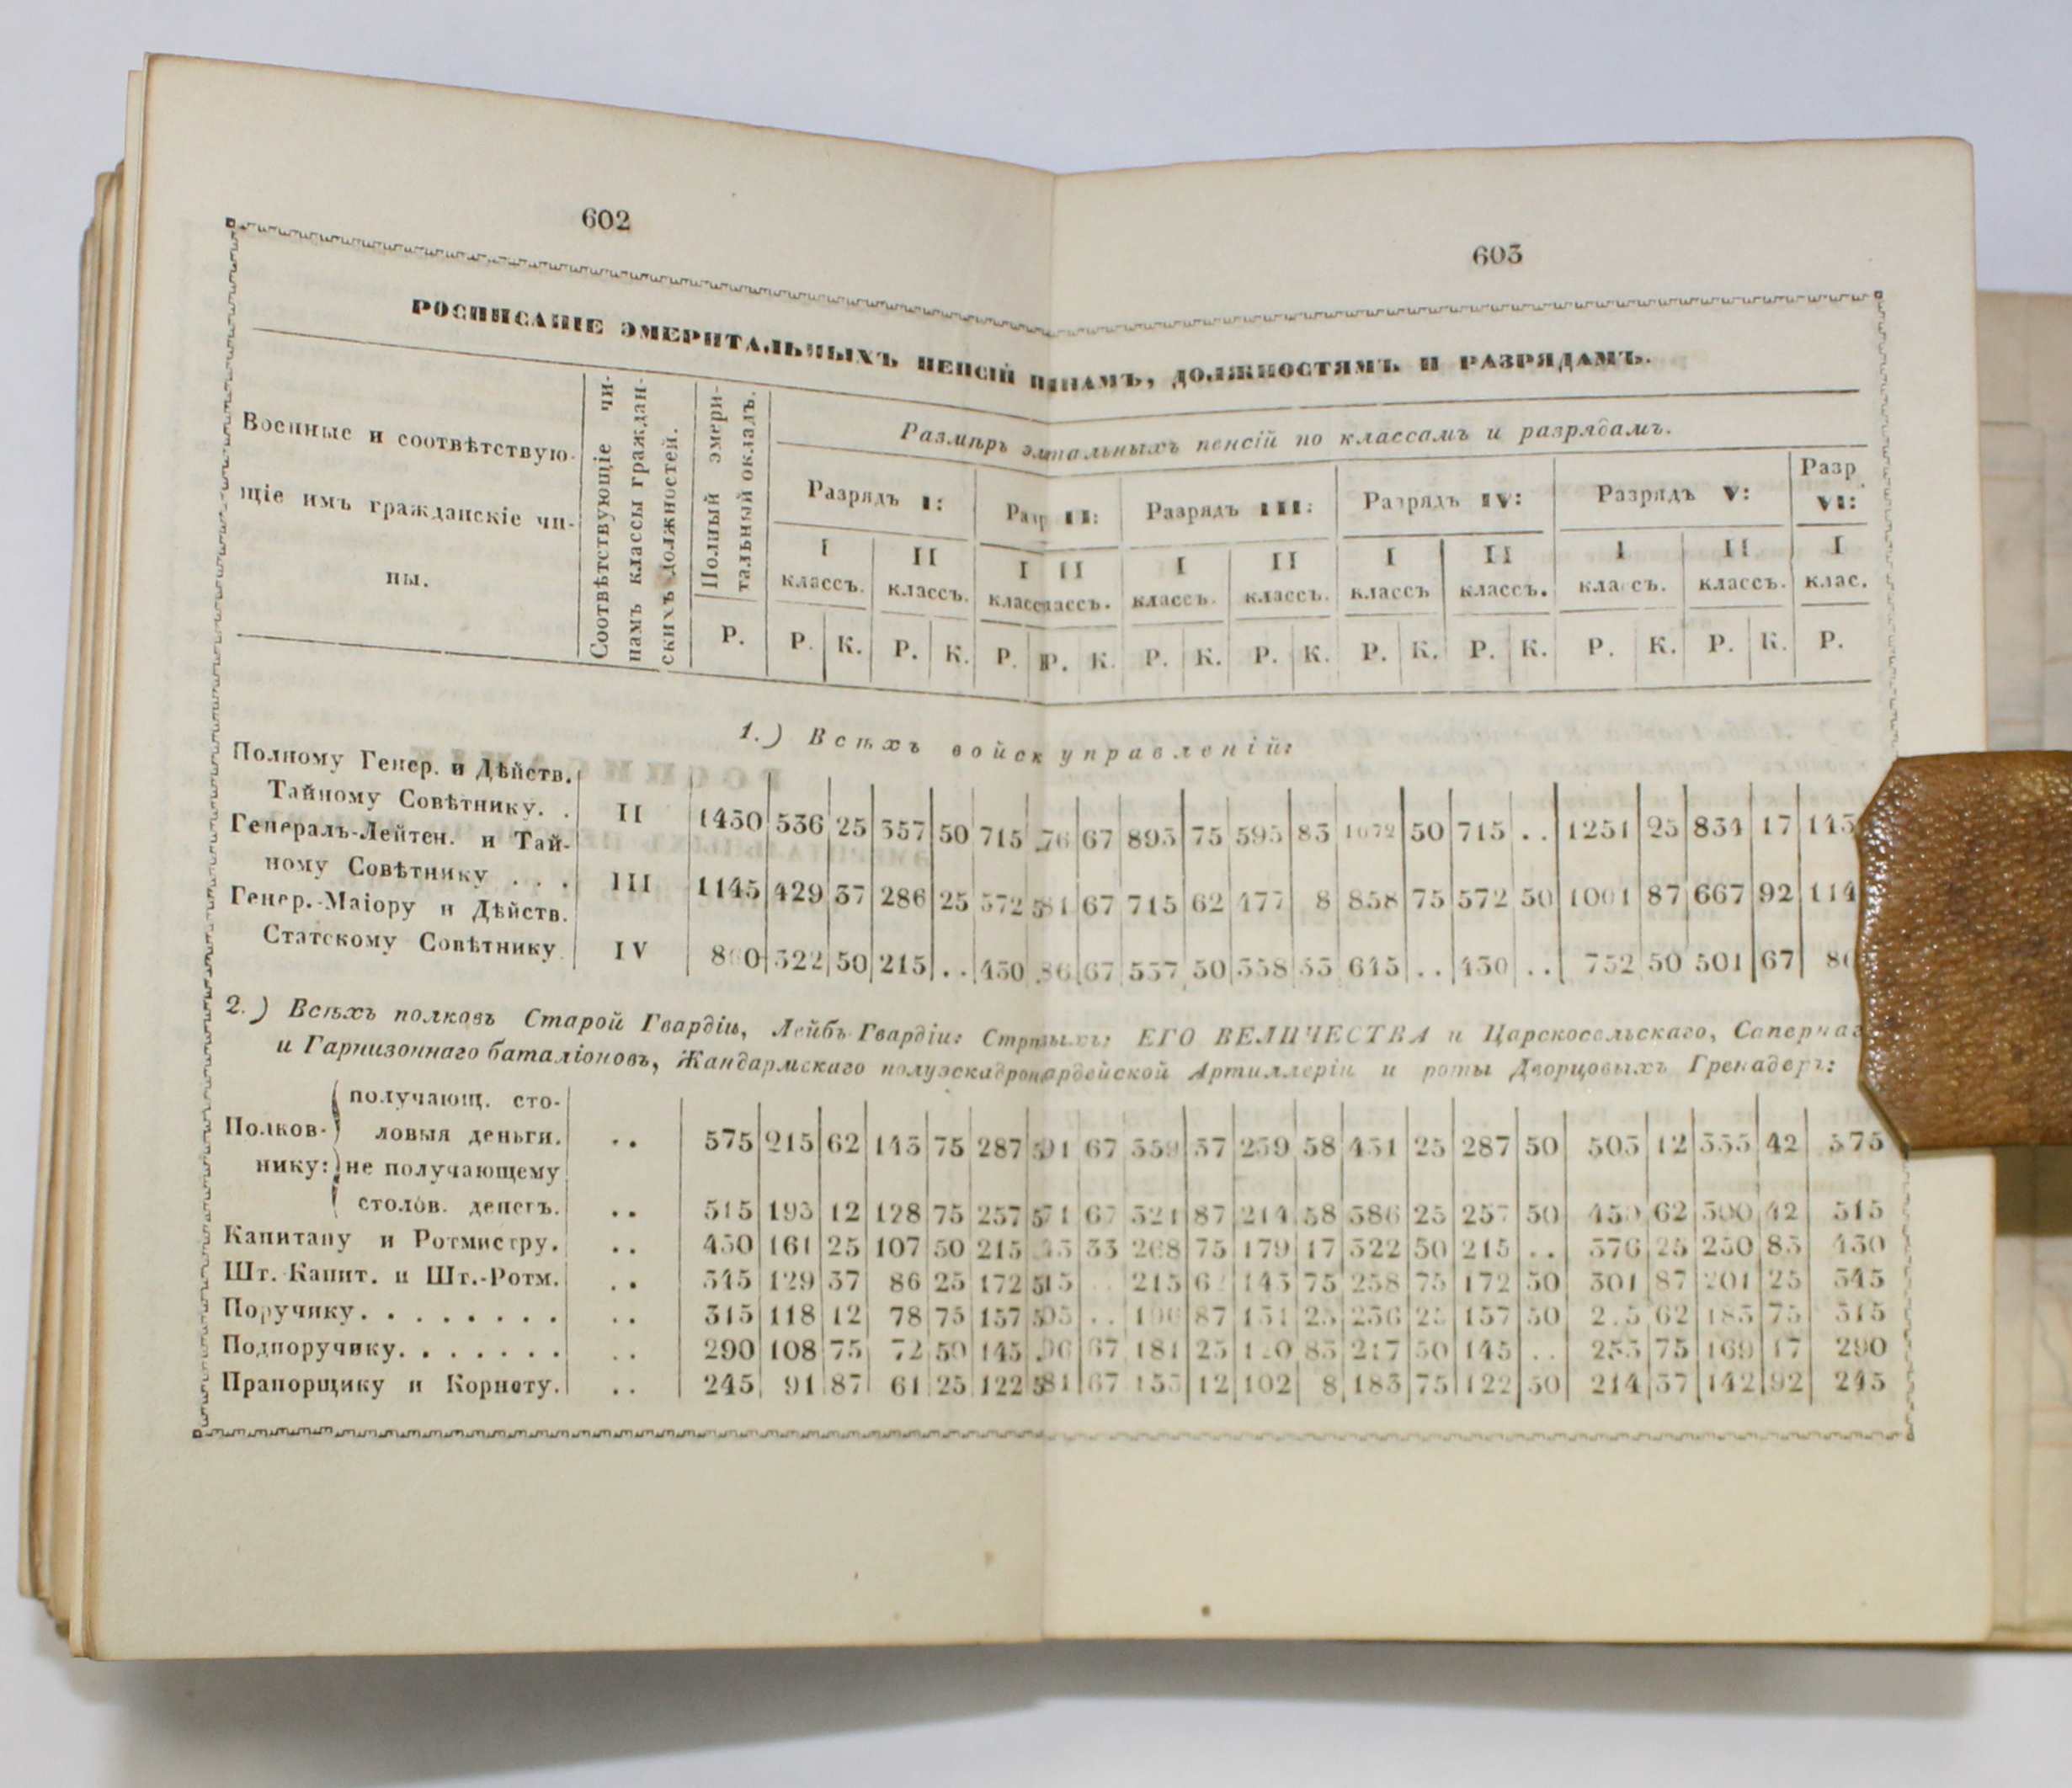 602
603
РОСПИСАНІЕ ЭМЕРИТАЛЬНЫХЪ ПЕНСІЙ ИНАМЪ, ДОЛЖНОСТЯМЪ И РАЗРЯДАМЪ.
Военные и соотвѣтствую-
щіе имъ гражданскіе чи-
ны.
Соотвѣтствующіе чи-
намъ классы граждан-
скихъ должностей.
Полный эмери-
тальный окладъ.
Размѣръ тальныхъ пенсій по классамъ и разрядамъ.
Разрядъ I: II: Разрядъ III: Разрядъ IV: Разрядъ V: Разр. VI:
I II I II I II I II I II I
классъ. классъ. классъ. классъ. классъ классъ. классъ. классъ. клас.
Р. Р. К. Р. К. Р. Р. К. Р. К. Р. К. Р. К. Р. К. Р. К. Р. К. Р.
1.) Всѣхъ войск управленій:
Полному Генер. и Дѣйств.
Тайному Совѣтнику. . II 1430 536 25 357 50 715 67 893 75 595 83 1072 50 715 . . 1251 25 834 17
Генералъ-Лейтен. и Тай-
ному Совѣтнику . . . III 1145 429 37 286 25 572 67 715 62 477 8 858 75 572 50 1001 87 667 92
Генер.-Маіору и Дѣйств.
Статскому Совѣтнику IV 860 322 50 215 . . 430 67 537 50 358 33 645 . . 430 . . 752 50 501 67
2.) Всѣхъ полковъ Старой Гвардіи, Лейбъ-Гвардіи: ЕГО ВЕЛИЧЕСТВА и Царскосельскаго,
и Гарнизоннаго баталіоновъ, Жандармскаго Артиллеріи и роты Дворцовыхъ Гренадеръ:
Полков-
нику:
получающ. сто-
ловыя деньги. . . 575 215 62 143 75 287 67 359 37 239 58 431 25 287 50 503 12 335 42 575
не получающему
столов. денегъ. . . 515 193 12 128 75 257 67 321 87 214 58 386 25 257 50 450 62 300 42 515
Капитану и Ротмистру. . . 430 161 25 107 50 215 33 268 75 179 17 322 50 215 . . 376 25 250 83 430
Шт.-Капит. и Шт.-Ротм. . . 345 129 37 86 25 172 . . 215 62 143 75 258 75 172 50 301 87 201 25 345
Поручику. . . . . . . . . . 315 118 12 78 75 157 . . 87 131 25 236 25 157 50 62 183 75 315
Подпоручику. . . . . . . . . 290 108 75 72 50 145 67 181 25 83 217 50 145 . . 253 75 169 17 290
Прапорщику и Корнету. . . 245 91 87 61 25 122 67 153 12 102 8 183 75 122 50 214 37 142 92 245